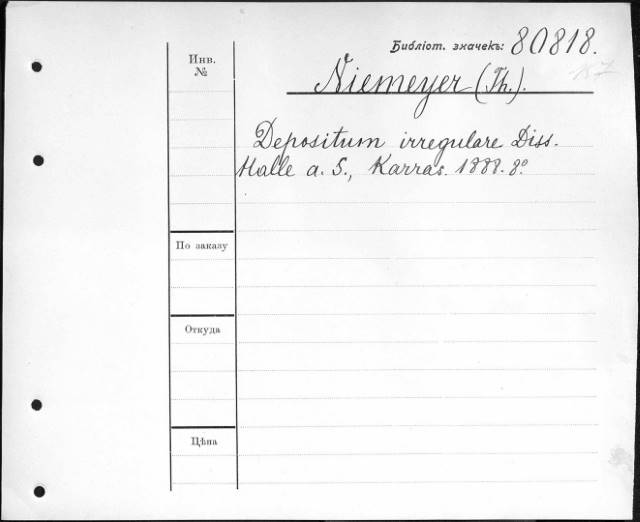 Библіот. значекъ: 80818.
Инв.
№
Niemeyer (Th.).
Depositum irregulare Diss.
Halle a. S., Karras. 1888. 8º
По заказу
Откуда
Цѣна